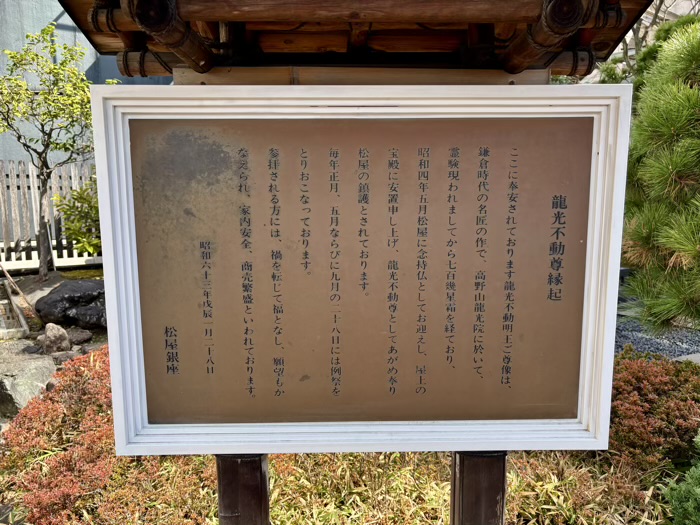 龍光不動尊縁起
ここに奉安されております龍光不動明王ご尊像は、
鎌倉時代の名匠の作で、高野山龍光院に於いて、
霊験現われましてから七百幾星霜を経ており、
昭和四年五月松屋に念持仏としてお迎えし、屋上の
宝殿に安置申し上げ、龍光不動尊としてあがめ奉り
松屋の鎮護とされております。
毎年正月、五月ならびに九月の二十八日には例祭を
とりおこなっております。
参拝される方には、禍を転じて福となし、願望もか
なえられ、家内安全、商売繁盛といわれております。
昭和六十三年戊辰一月二十八日
松屋銀座